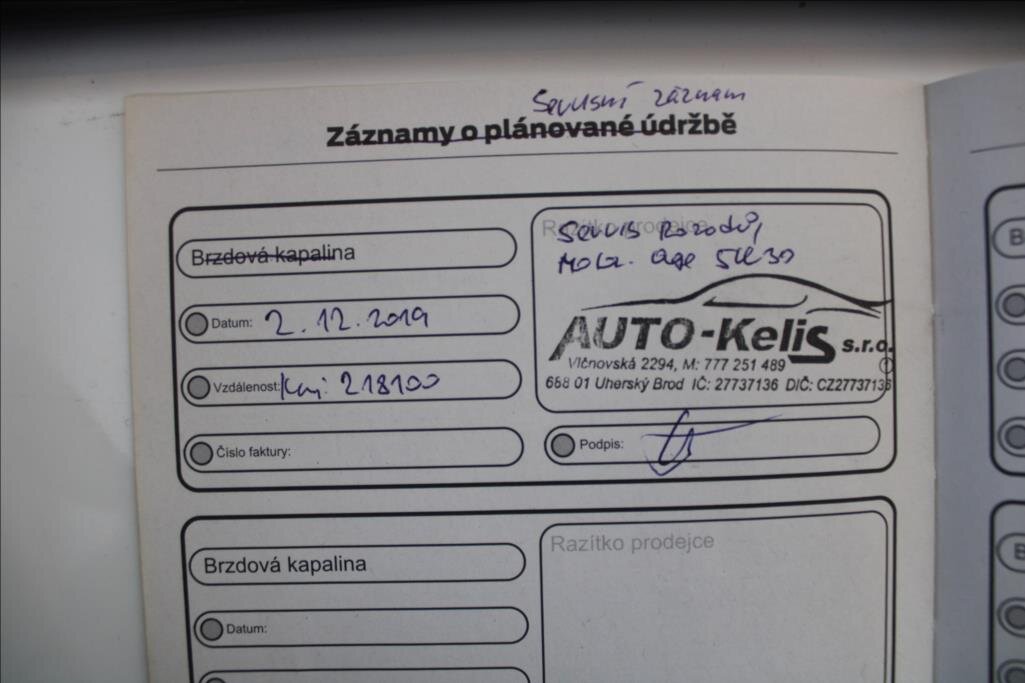 Servisní záznam
Záznamy o plánované údržbě
Brzdová kapalina
Datum: 2.12.2019
Vzdálenost: Km: 218100
Číslo faktury:
Razítko prodejce
Servis Rozvodů,
Motor. oleje 5W30
AUTO-Kelis s.r.o.
Vlčnovská 2294, M: 777 251 489
688 01 Uherský Brod IČ: 27737136 DIČ: CZ27737136
Podpis:
Brzdová kapalina
Datum:
Razítko prodejce
B
B